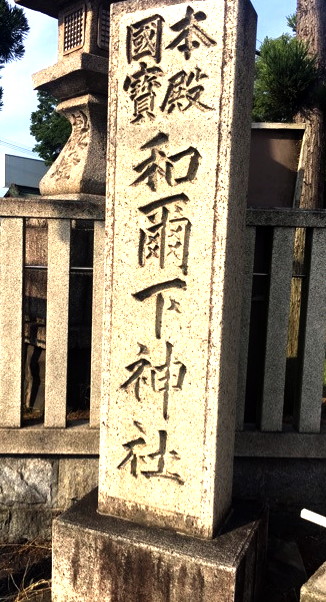 本殿
國寶
和爾下神社